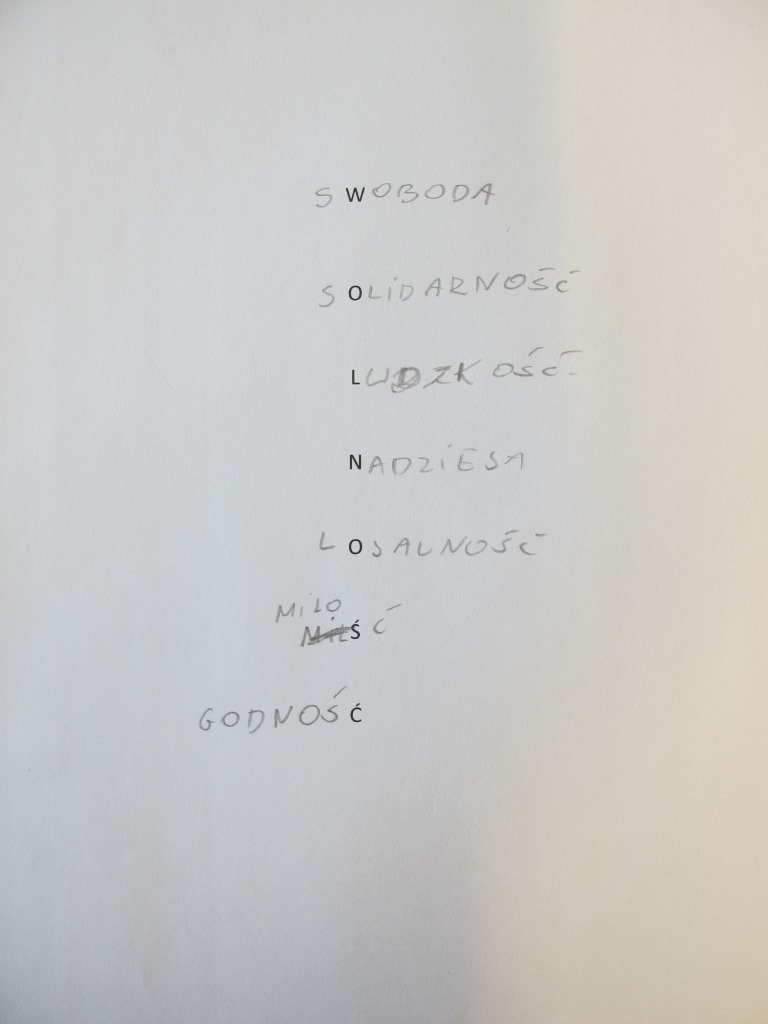 SWOBODA
SOLIDARNOŚĆ
LUDZKOŚĆ
NADZIEJA
LOJALNOŚĆ
MIŁOŚĆ
GODNOŚĆ